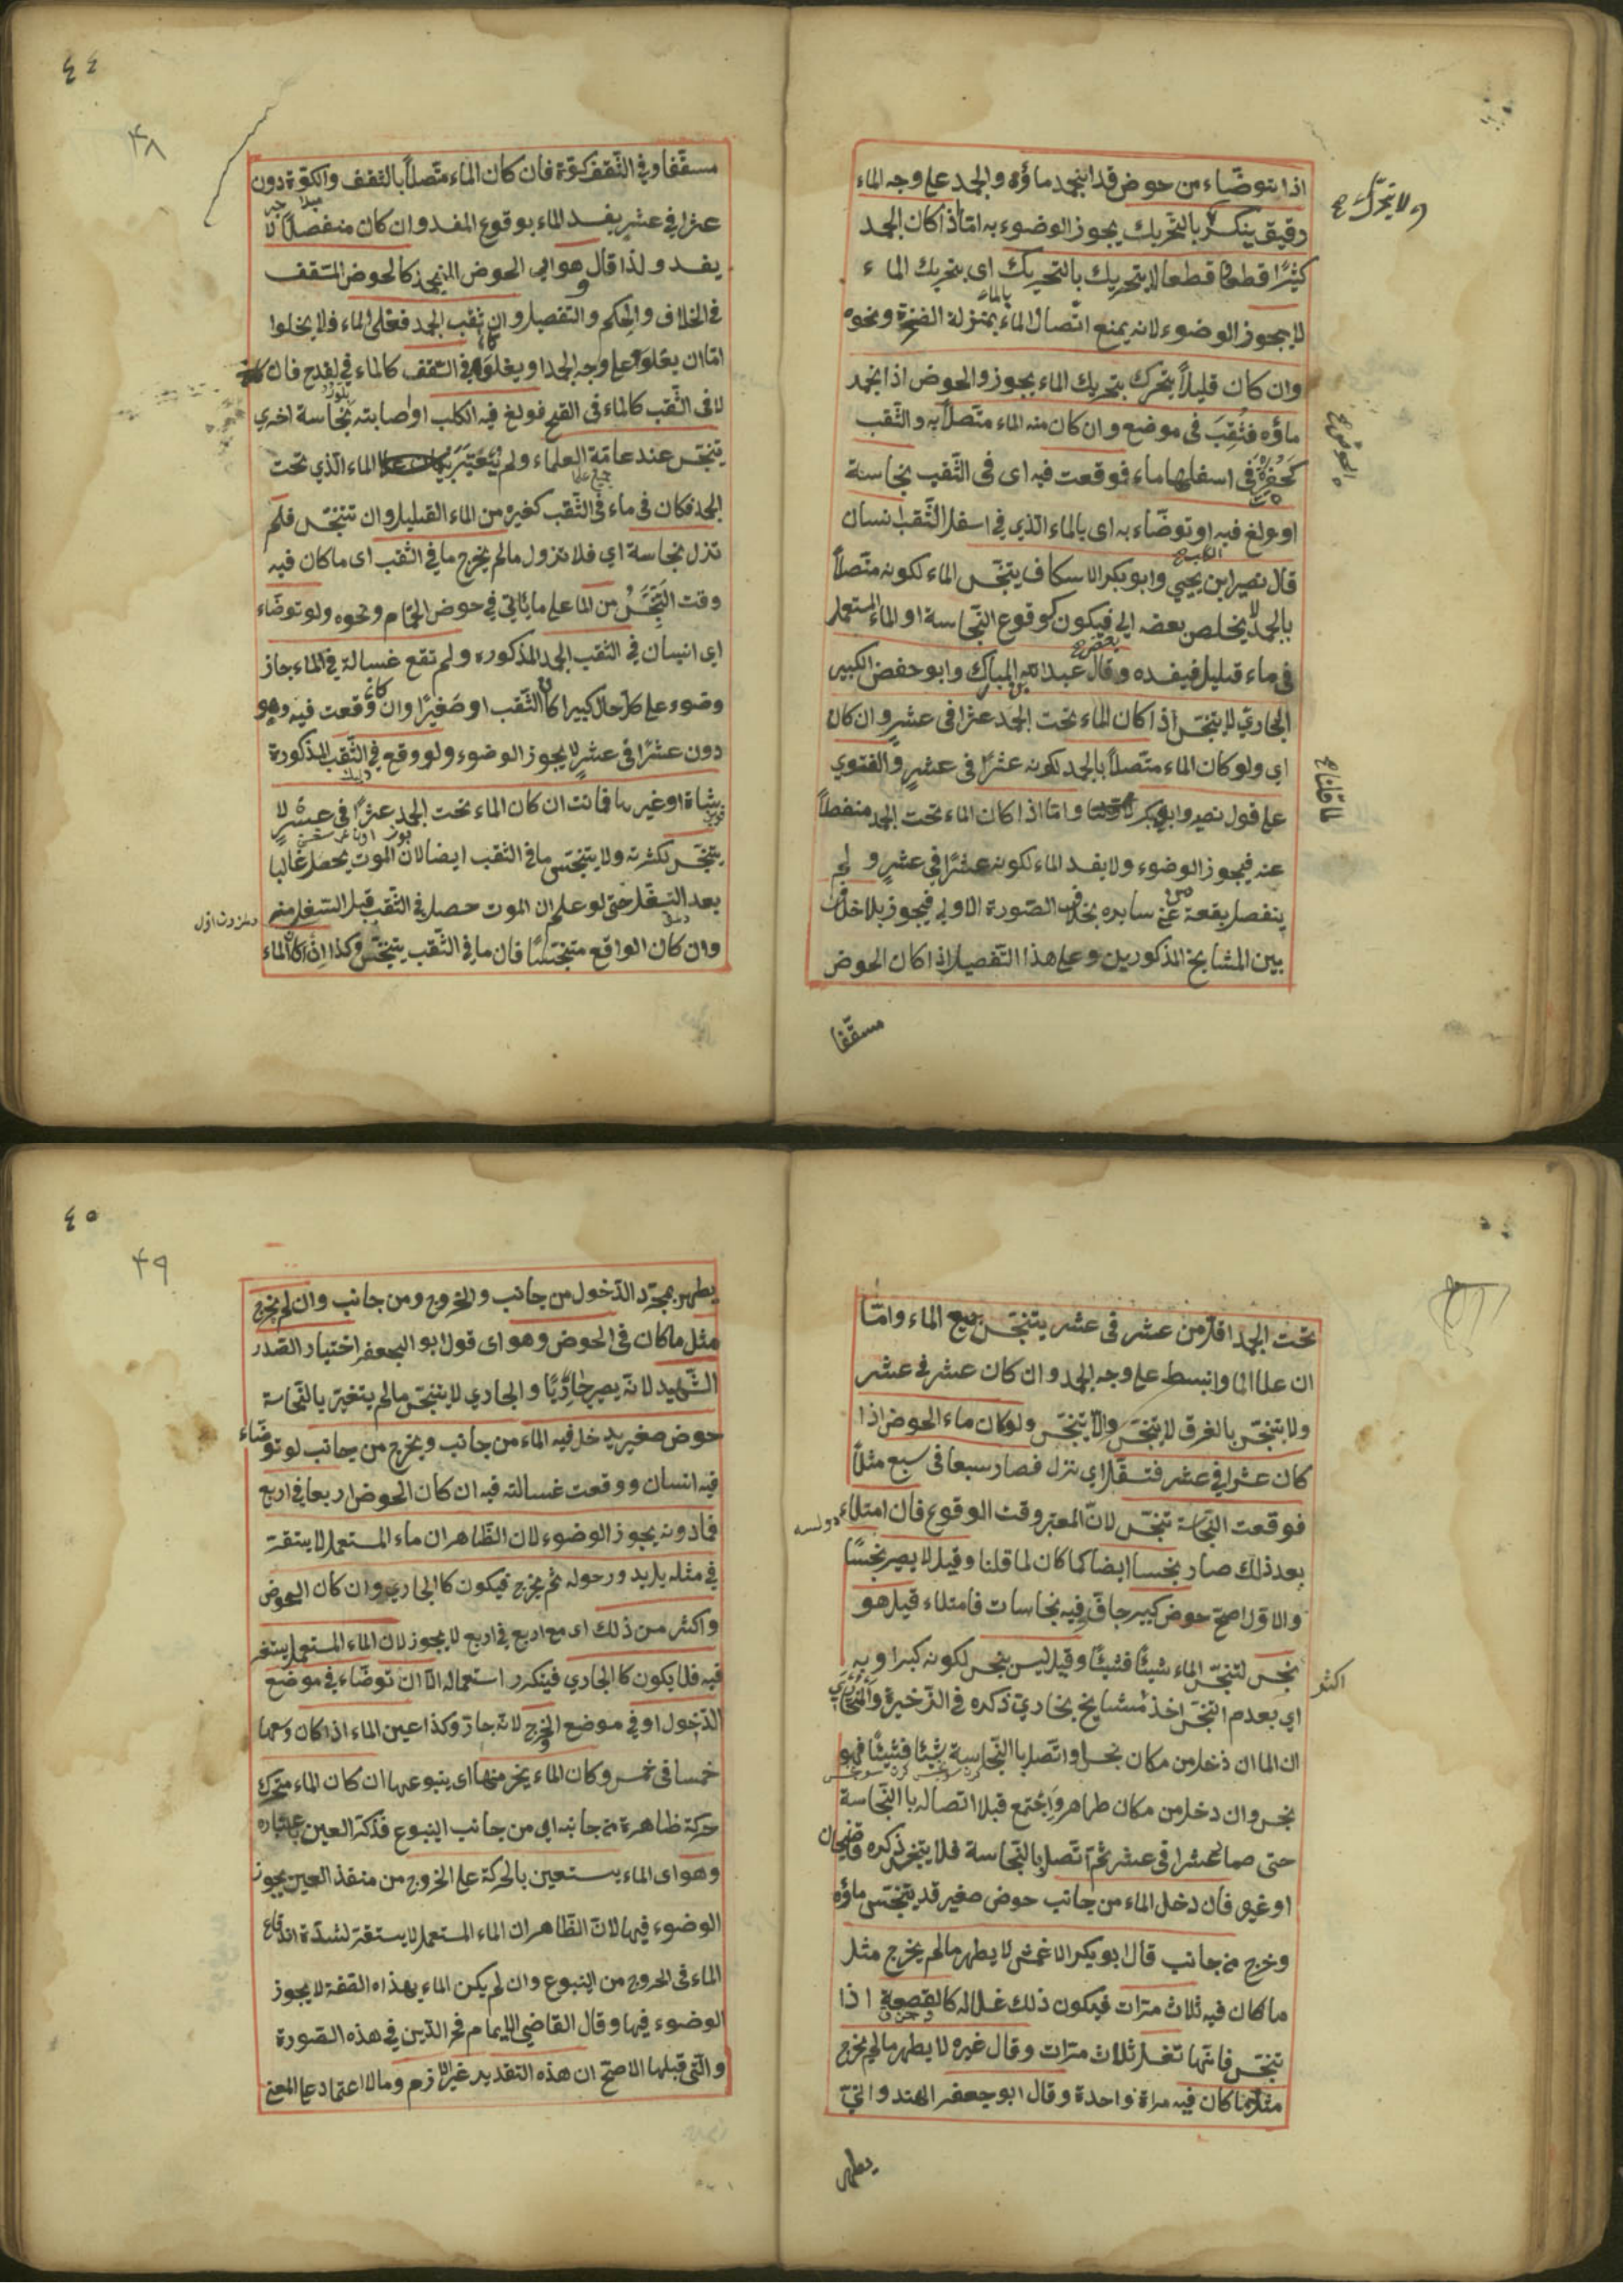 اذا توضاء من حوض قد انجمد ماؤه والجمد على وجه الماء
رقيق ينكسر بالتحريك يجوز الوضوء به امّا اذا كان الجمد
كثيرًا قطعا قطعا لا يتحرك بالتحريك اى بتحريك الماء
لا يجوز الوضوء لانه يمنع اتصال الماء بمنزلة الصخرة ونحوه
وان كان قليلاً يتحرك بتحريك الماء يجوز والحوض اذا انجمد
ماؤه فثُقِبَ فى موضع وان كان منه الماء متّصلاً به والثقب
كحفرة فى اسفلها ماء فوقعت فيه اى فى الثقب نجاسة
او ولغ فيه او توضّاء به اى بالماء الذي في اسفل الثقب انسان
قال نصير ابن يحيي وابو بكر الاسكاف يتنجّس الماء لكونه متّصلاً
بالجمد لا يخلص بعضه الى فيكون كوقوع النّجاسة او الماء المستعمل
فى ماء قليل فيفسده وقال عبد الله المبارك وابو حفص الكبير
البخاريّ لا يتنجّس اذا كان الماء تحت الجمد عشرا فى عشرٍ وان كان
اي ولو كان الماء متّصلاً بالجمد لكونه عشرًا فى عشرٍ والفتوي
على قول نصير وابو بكر وامّا اذا كان الماء تحت الجمد منفصلاً
عنه فيجوز الوضوء ولا يفسد الماء لكونه عشرًا في عشرٍ و لم
ينفصل بقعة عن سايره بخلاف الصّورة الاولي فيجوز بلا خلاف
بين المشايخ المذكورين وعلى هذا التّفصيل اذا كان الحوض
مسقّفا
ولا تحرّك
٤٤
٤٨
مسقّفا وفي السّقف كوّة فان كان الماء متّصلاً بالسّقف والكوّة دون
عشرا في عشرٍ يفسد الماء بوقوع المفسد وان كان منفصلاً لا
يفسد ولذا قال هو اى الحوض المنجمد كالحوض المسقف
فى الخلاف والحكم والتفصيل وان ثقب الجمد فعلى الماء فلا يخلوا
امّا ان يعلو على وجه الجمد او يعلو فى السّقف كالماء في القدح فان كان
لا فى الثّقب كالماء فى القدح فولغ فيه الكلب او اصابته نجاسة اخري
يتنجّس عند عامّة العلماء ولم يُعتبَر الماء الّذي تحت
الجمد فكان فى ماء فى الثّقب كغيره من الماء القليل وان تنجّس فلم
تزل نجاسة اي فلا تزول ما لم يخرج ما في الثقب اى ما كان فيه
وقت التنجّس من الماء على ما يأتي في حوض الحمّام ونحوه ولو توضّاء
اي انسان في الثقب الجمد المذكوره ولم تقع غسالة في الماء جاز
وضوء على كلّ حال كبيرا كان الثّقب او صَغيرًا وان كانت وقعت فيه وهو
دون عشرًا فى عشرٍ لا يجوز الوضوء ولو وقع في الثّقب المذكورة
شاة او غيرها فماتت ان كان الماء تحت الجمد عشرًا فى عشرٍ لا
يتنجّس لكثرته ولا يتنجّس ما في الثقب ايضا لان الموت يحصل غالبا
بعد التسفّل حتى لو علم ان الموت حصل في الثقب قبل التسفل منه
وان كان الواقع متنجّسًا فان ما في الثّقب يتنجّس وكذا ان كان الماء
تحت الجمد اقلّ من عشر فى عشر يتنجّس جميع الماء وامّا
ان علا الما وانبسط على وجه الجمد وان كان عشر فى عشر
ولا يتنجّس بالغرق لا يتنجّس والاّ يتنجّس ولو كان ماء الحوض اذا
كان عشرا في عشر فتسفّل اي نزل فصار سبعا فى سبع مثلاً
فوقعت النّجاسة تنجّس لانّ المعتبر وقت الوقوع فان امتلاء
بعد ذلك صار نجسا ايضا كما كان لما قلنا وقيل لا يصير نجسًا
والاوّل اصحّ حوض كبير جافّ فيه نجاسات فامتلاء قيل هو
نجس لتنجّس الماء شيئًا فشيئًا وقيل ليس بنجس لكونه كبيرا وبه
اكثر
اي بعدم التنجّس اخذ مشايخ بخاريّ ذكره فى الذّخيرة والمختار
ان الما ان دخل من مكان نجس او اتّصل باالنّجاسة شيئًا فشيئًا فهو
نجس وان دخل من مكان طاهر واجتمع قبل اتصاله باالنّجاسة
حتى صار عشرا فى عشر ثم اتّصل بالنّجاسة فلا يتنجّس ذكره قاضيخان
او غيره فان دخل الماء من جانب حوض صغير قد يتنجّس ماؤه
وخرج من جانب قال ابو بكر الاعمش لا يطهر ما لم يخرج مثل
ما كان فيه ثلاث مرّات فيكون ذلك غسلا له كالقصعة اذا
تنجّس فانّها تغسل ثلاث مرّات وقال غيره لا يطهر ما لم يخرج
مثل ما كان فيه مراة واحدة وقال ابو جعفر الهندوانيّ
يطهر
٤٥
٤٩
يطهر بمجرّد الدّخول من جانب والخروج ومن جانب وان لم يخرج
مثل ما كان فى الحوض وهو اى قول ابو الجعفر اختيار الصّدر
الشّهيد لانّه يصير جاريًا والجاري لا يتنجّس ما لم يتغيّر بالنّجاسة
حوض صغير يدخل فيه الماء من جانب ويخرج من جانب لو توضّاء
فيه انسان ووقعت غسالته فيه ان كان الحوض اربعا في اربع
فما دونه يجوز الوضوء لان الظّاهر ان ماء المستعمل لا يستقرّ
في مثله بل يدور حوله ثم يخرج فيكون كالجاري وان كان الحوض
واكثر من ذلك اى مع اربع في اربع لا يجوز لان الماء المستعمل يستقر
فيه فلا يكون كالجاري فيتكرر استعماله الاّ ان توضّاء في موضع
الدّخول او في موضع الخرج لانّه جاز وكذا عين الماء اذا كان وسعها
خمسا فى خمس وكان الماء يخرج منها اى ينبوعها ان كان الماء متحرك
حركة ظاهرة من جانبه اي من جانب الينبوع فذكّر العين باعتباره
وهو اى الماء يستعين بالحركة على الخروج من منفذ العين يجوز
الوضوء فيها لانّ الظّاهر ان الماء المستعمل لا يستقرّ لشدّة اندفاع
الماء فى الخروج من الينبوع وان لم يكن الماء بهذاه الصّفة لا يجوز
الوضوء فيها وقال القاضي الامام فخر الدّين في هذه الصّورة
والّتى قبلها الاصحّ ان هذه التّقدير غير لازم ومالا اعتماد على المعنى